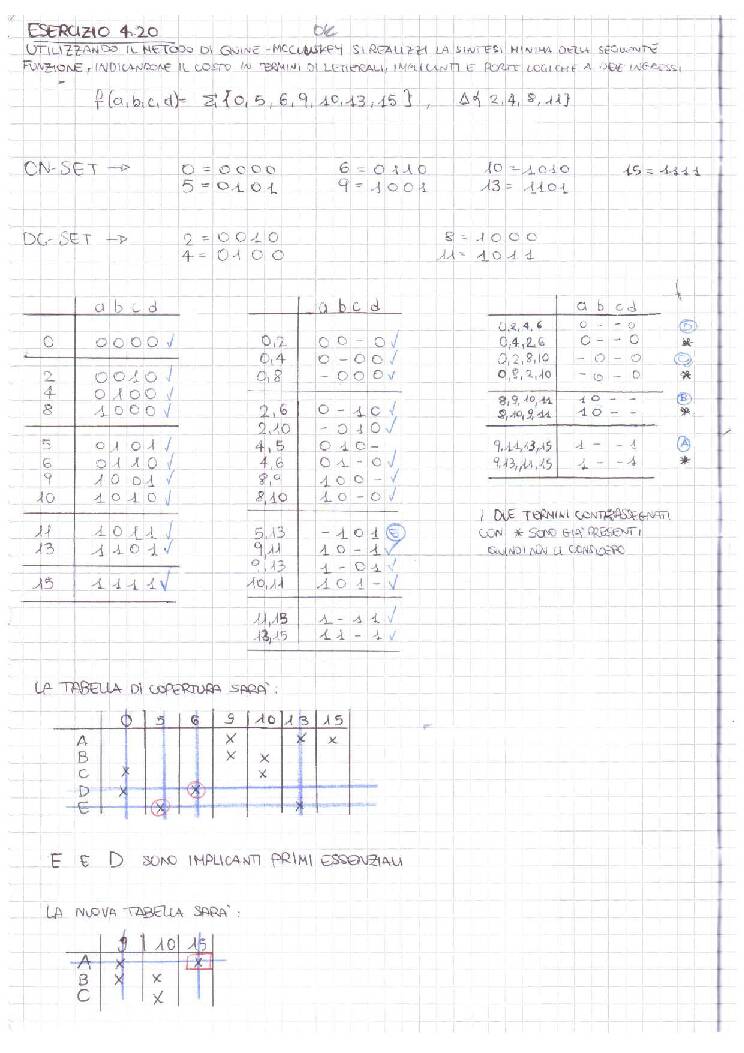 ESERCIZIO 4.20 OK
UTILIZZANDO IL METODO DI QUINE-McCLUSKEY SI REALIZZI LA SINTESI MINIMA DELLA SEGUENTE
FUNZIONE, INDICANDONE IL COSTO IN TERMINI DI LETTERALI, IMPLICANTI E PORTE LOGICHE A DUE INGRESSI
f(a,b,c,d) = Σ{0, 5, 6, 9, 10, 13, 15}, Δ{2, 4, 8, 11}
ON-SET → 0 = 0000 6 = 0110 10 = 1010 15 = 1111
5 = 0101 9 = 1001 13 = 1101
DC-SET → 2 = 0010 8 = 1000
4 = 0100 11 = 1011
a b c d
0 0000 ✓
2 0010 ✓
4 0100
8 1000 ✓
5 0101 ✓
6 0110 ✓
9 1001 ✓
10 1010 ✓
11 1011 ✓
13 1101 ✓
15 1111 ✓
a b c d
0,2 00-0 ✓
0,4 0-00 ✓
0,8 -000 ✓
2,6 0-10 ✓
2,10 -010 ✓
4,5 010-
4,6 01-0 ✓
8,9 100- ✓
8,10 10-0 ✓
5,13 -101 E
9,11 10-1 ✓
9,13 1-01 ✓
10,11 101- ✓
11,15 1-11 ✓
13,15 11-1 ✓
a b c d
0,2,4,6 0--0 D
0,4,2,6 0--0 *
0,2,8,10 -0-0 C
0,8,2,10 -0-0 *
8,9,10,11 10-- B
8,10,9,11 10-- *
9,11,13,15 1--1 A
9,13,11,15 1--1 *
I DUE TERMINI CONTRASSEGNATI
CON * SONO GIA' PRESENTI
QUINDI NON LI CONSIDERO
LA TABELLA DI COPERTURA SARA':
0 5 6 9 10 13 15
A x x x
B x x
C x x
D x x
E x x
E E D SONO IMPLICANTI PRIMI ESSENZIALI
LA NUOVA TABELLA SARA':
9 10 15
A x x
B x x
C x